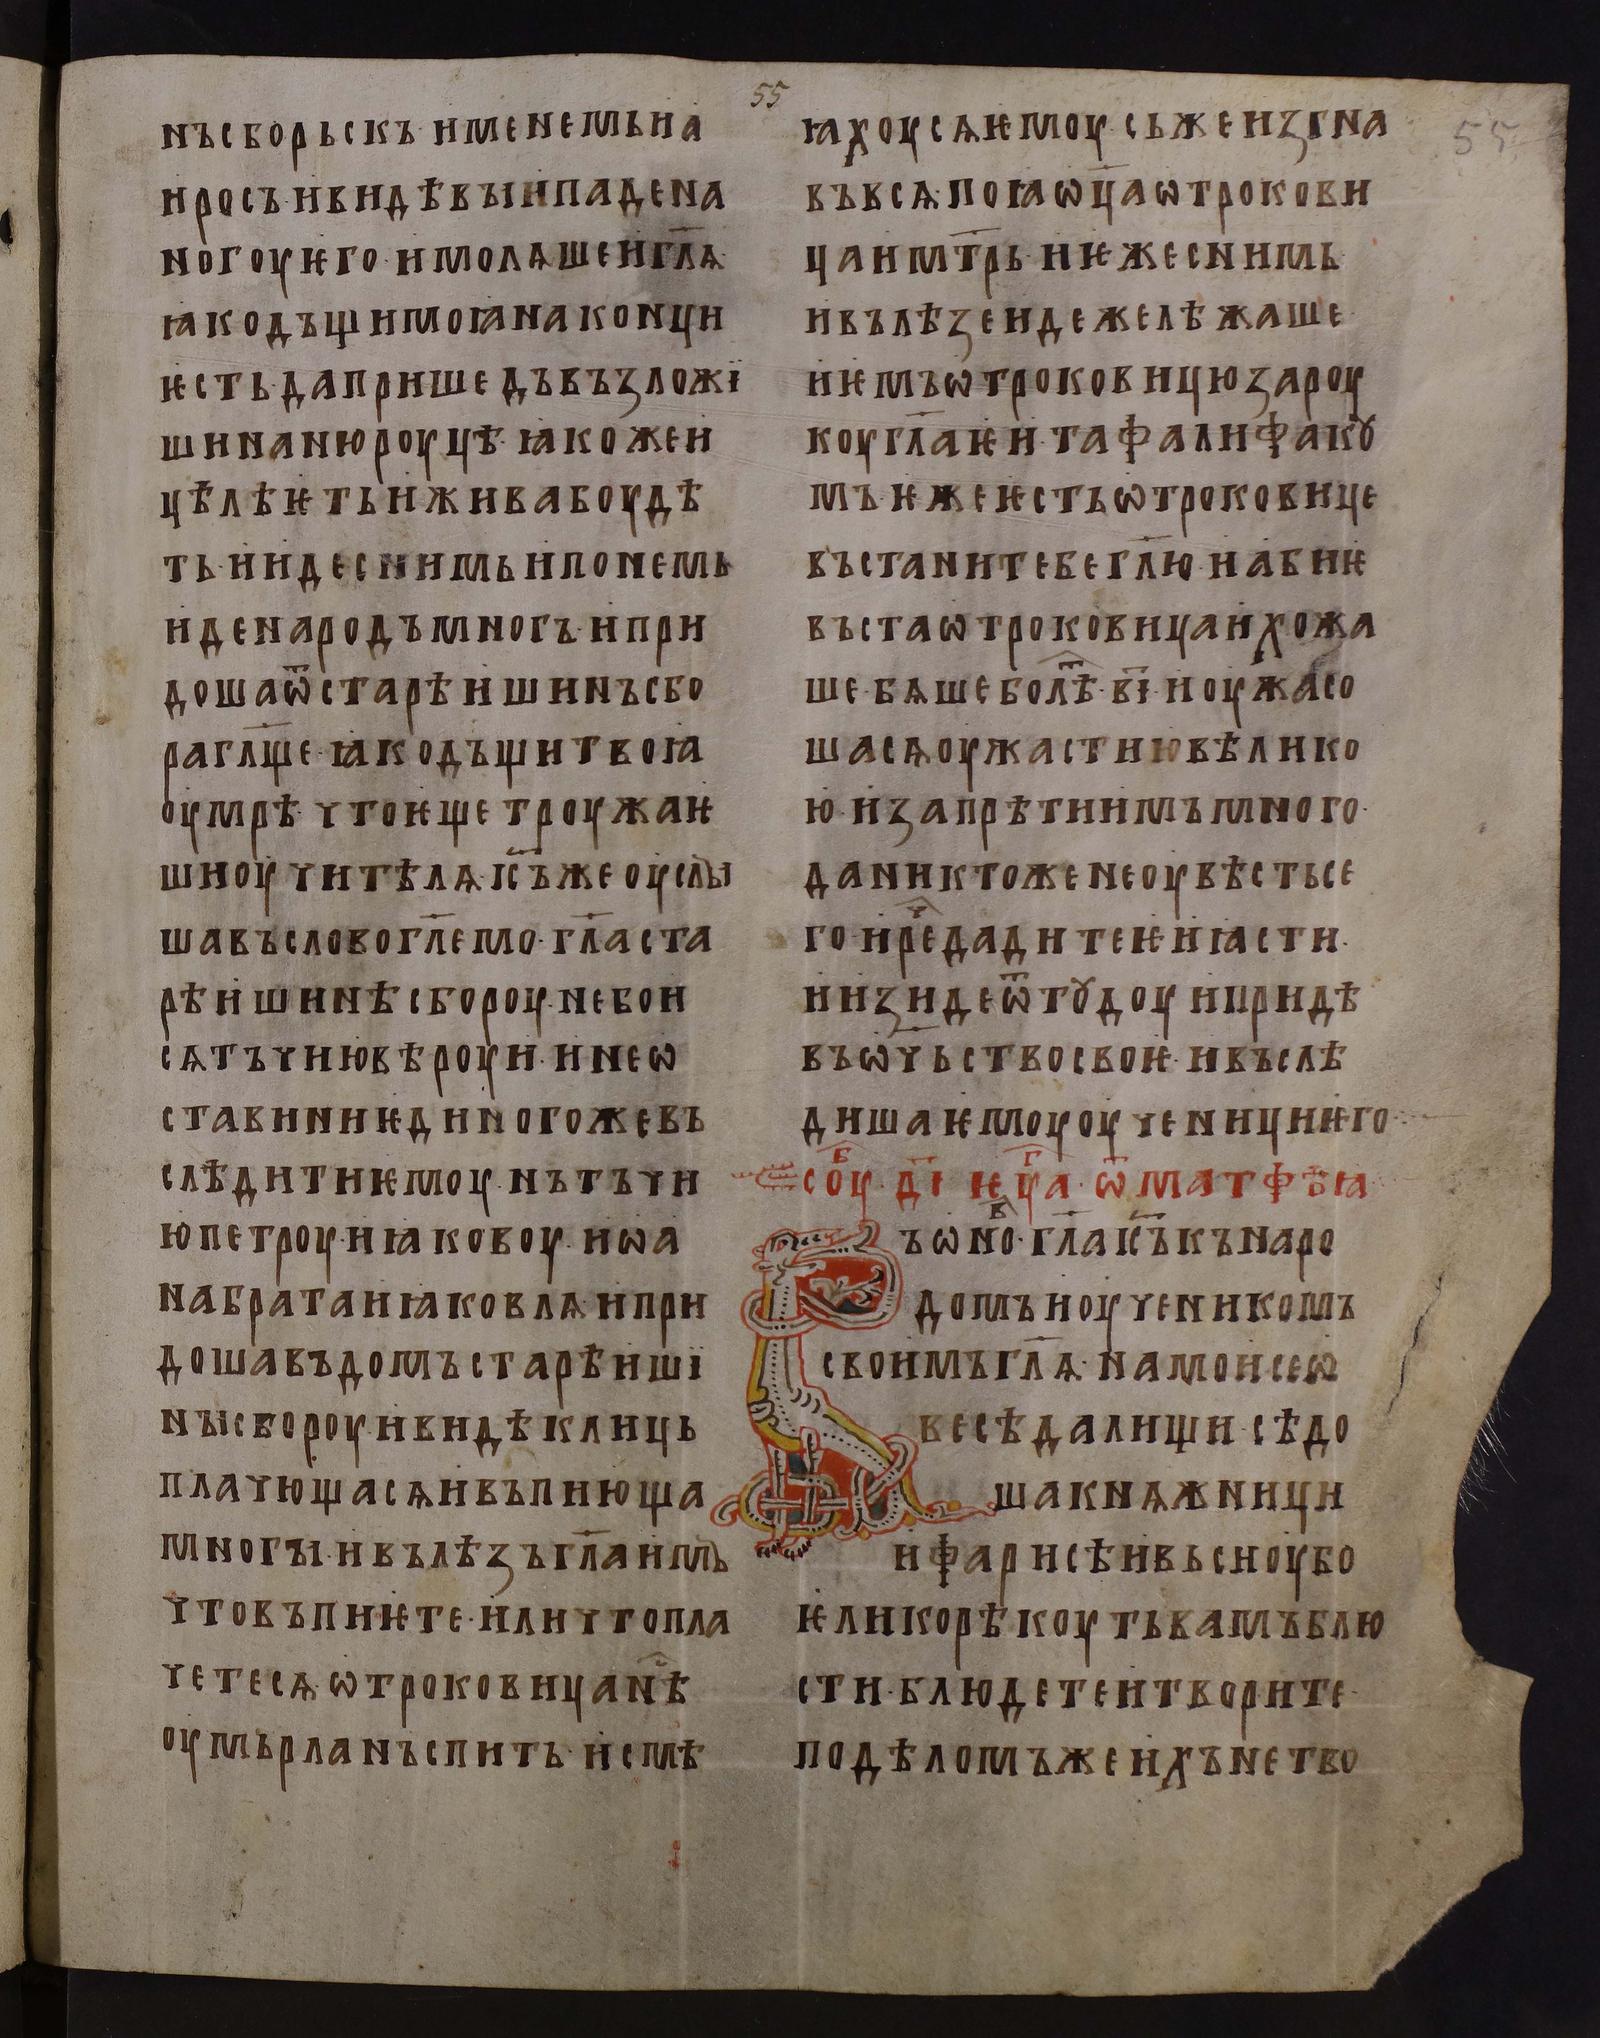 55
нъсборьскъ· именемьиа
иросъ·ивидѣвыипадена
ногоуѥго·имолѧшеигл҃ѧ·
ꙗкодъщимоꙗнаконци
ѥсть·дапришедъвъзложі
шинанюроуцѣ·ꙗкожеи
цѣлѣѥтьиживабоудѣ
ть·иидеснимьипонемь
иденародъмногъ·ипри
дошаѿстарѣишинъсбо
рагл҃ще·ꙗкодъщитвоꙗ
оумрѣ·чтоѥщетроужаѥ
шиоучителѧ·іс҃ъжеоуслы
шавъсловогл҃емо·гл҃аста
рѣишинѣсбороу·небои
сѧтъчнювѣроуи·инеѡ
ставиниѥдиногожевъ
слѣдитиѥмоу·нътъчи
юпетроу·иꙗковоу·иѡа
набратаиꙗковлѧ·ипри
дошавъдомъстарѣиші
ныісбороу·ивидѣклиць
плачющасѧивъпиюща
многы·ивълѣзъгл҃аимъ
чтовъпиѥте·иличтопла
четесѧ·ѡтроковицанѣс
оумьрланъспить·исмѣ
55
ꙗхоусѧѥмоу·сьжеизгна
въвсѧ·поꙗѡц҃аѡтрокови
цаимт҃рь·иѥжеснимь
ивълѣзеидежележаше
иѥмъѡтроковицюзароу
коугл҃аѥи·тафалифакꙋ
мъ·ѥжеѥстьѡтроковице
въстанитебегл҃ю·иабиѥ
въстаѡтроковицаихожа
ше·бѧшеболѣт·в҃і·иоужасо
шасѧоужастиювѣлико
ю·изапрѣтиимъмного·
даниктоженеоувѣстьсе
го·иречедадитеѥиꙗсти·
иизидеѿтꙋдоу·ипридѣ
въѡч҃ьствосвоѥ·ивъслѣ
дишаѥмоуоученициѥго·
соуб·д҃і·ѥуга·ѿматфѣꙗ
ъѡновгл҃аіс҃ъкънаро
домъиоученикомъ
своимъгл҃ѧ·намоисеѡ
весѣдалищи·сѣдо
шакнѧжници
ифарисѣивьсиоубо
ѥликорѣкоутьвамъблю
сти·блюдетеитворите·
подѣломъжеихънетво